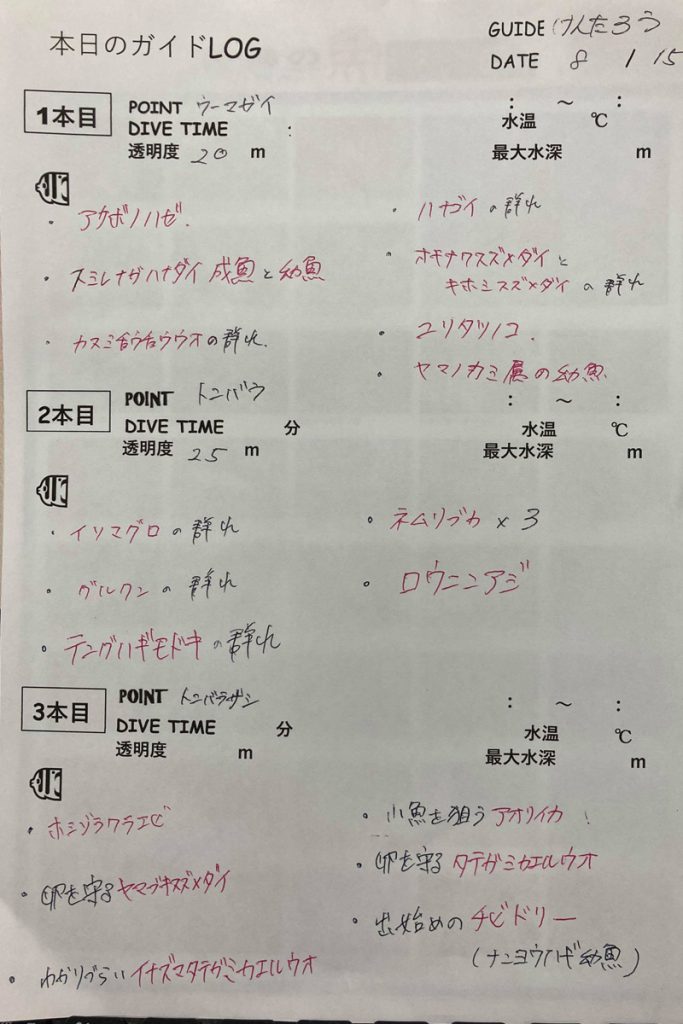 本日のガイドLOG
GUIDE けんたろう
DATE 8 / 15
1本目
POINT ウーマガイ
DIVE TIME :
透明度 20 m
: ～ :
水温 ℃
最大水深 m
・アケボノハゼ.
・スミレナガハナダイ 成魚と幼魚
・カスミチョウチョウウオの群れ.
・ハナゴイの群れ
・オキナワスズメダイと
キホシスズメダイの群れ
・ユリタツノコ.
・ヤマノカミ属の幼魚
2本目
POINT トンバラ
DIVE TIME 分
透明度 25 m
: ～ :
水温 ℃
最大水深 m
・イソマグロの群れ
・グルクンの群れ
・テングハギモドキの群れ
・ネムリブカ×3
・ロウニンアジ
3本目
POINT トンバラザシ
DIVE TIME 分
透明度 m
: ～ :
水温 ℃
最大水深 m
・ホシゾラワラエビ
・卵を守るヤマブキスズメダイ
・わかりづらいイナズマタテガミカエルウオ
・小魚を狙うアオリイカ!
・卵を守るタテガミカエルウオ
・出始めのチビドリー
(ナンヨウハギ幼魚)